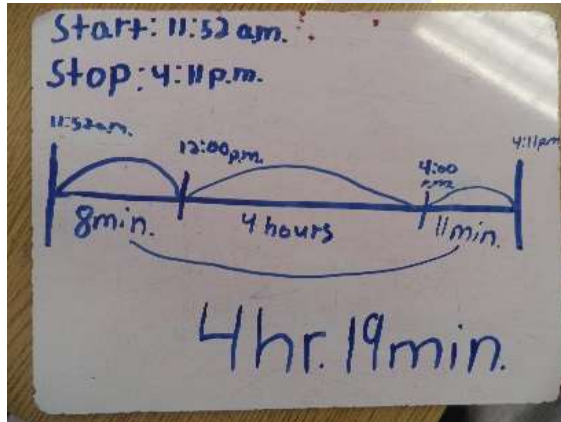 Start: 11:52 a.m.
Stop: 4:11 p.m.
11:52 a.m.
12:00 p.m.
4:00
p.m.
4:11 pm
8 min.
4 hours
11 min.
4 hr. 19 min.